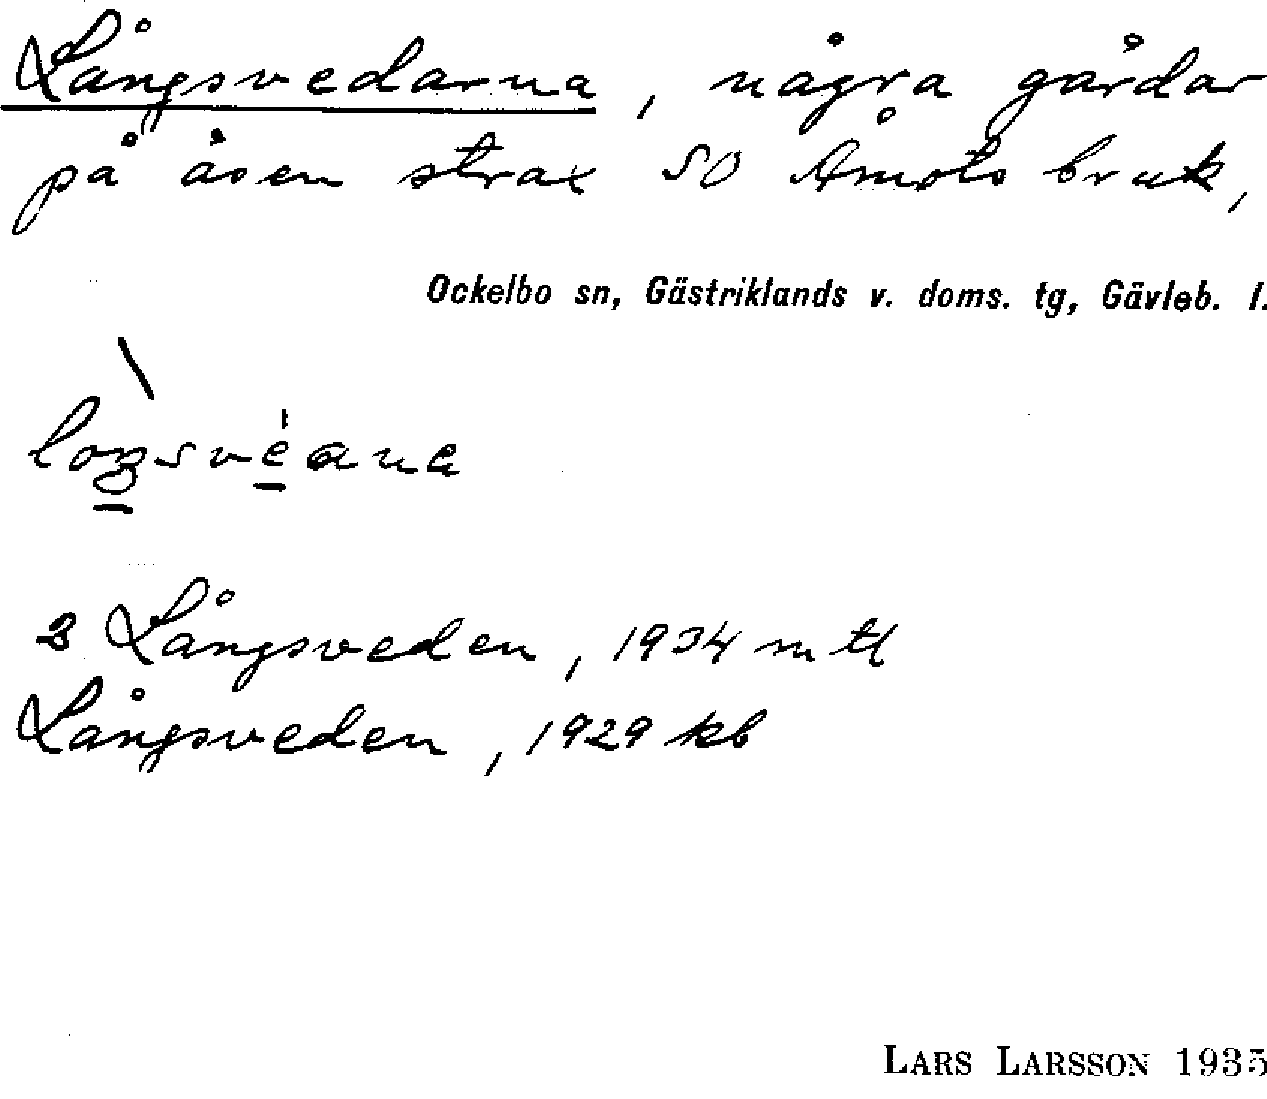 Långsvedarna, några gårdar
på åsen strax SO Åmots bruk,
Ockelbo sn, Gästriklands v. doms. tg, Gävleb. l.
2 Långsveden, 1934 mtl
Långsveden, 1929 kb
LARS LARSSON 1935